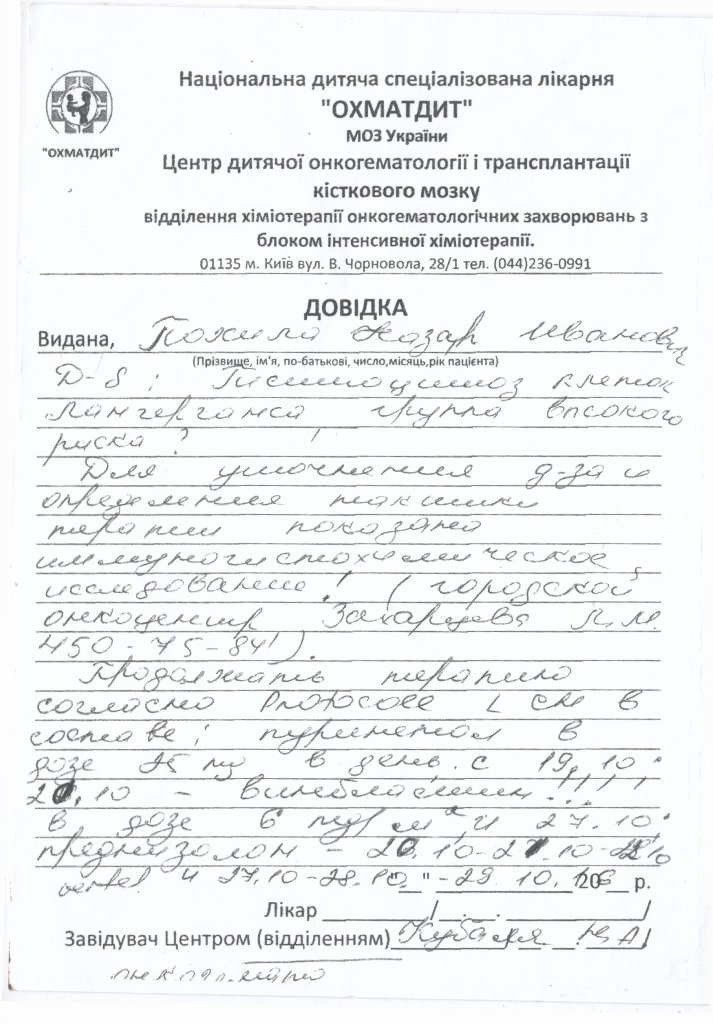 Національна дитяча спеціалізована лікарня
"ОХМАТДИТ"
МОЗ України
"ОХМАТДИТ"
Центр дитячої онкогематології і трансплантації
кісткового мозку
відділення хіміотерапії онкогематологічних захворювань з
блоком інтенсивної хіміотерапії.
01135 м. Київ вул. В. Чорновола, 28/1 тел. (044)236-0991
ДОВІДКА
Видана, Назар Иванович
(Прізвище, ім'я, по-батькові, число,місяць,рік пацієнта)
Д-з: Гистиоцитоз клеток
Лангерганса группа високого
риска?
Для уточнения д-за и
определения тактики
терапии показано
иммуногистохимическое
исследование! (городской
онкоцентр Захарцева Л.М.
450-75-84!).
Продолжать терапию
согласно LCH в
составе: пуринетол в
дозе 25 мг в день. с 19.10
.10 - винбластин!!!
в дозе 6 мг/м² и 27.10
преднизолон -
и 27.10-28.10 "__" -29 10. 20 р.
Лікар
Завідувач Центром (відділенням)